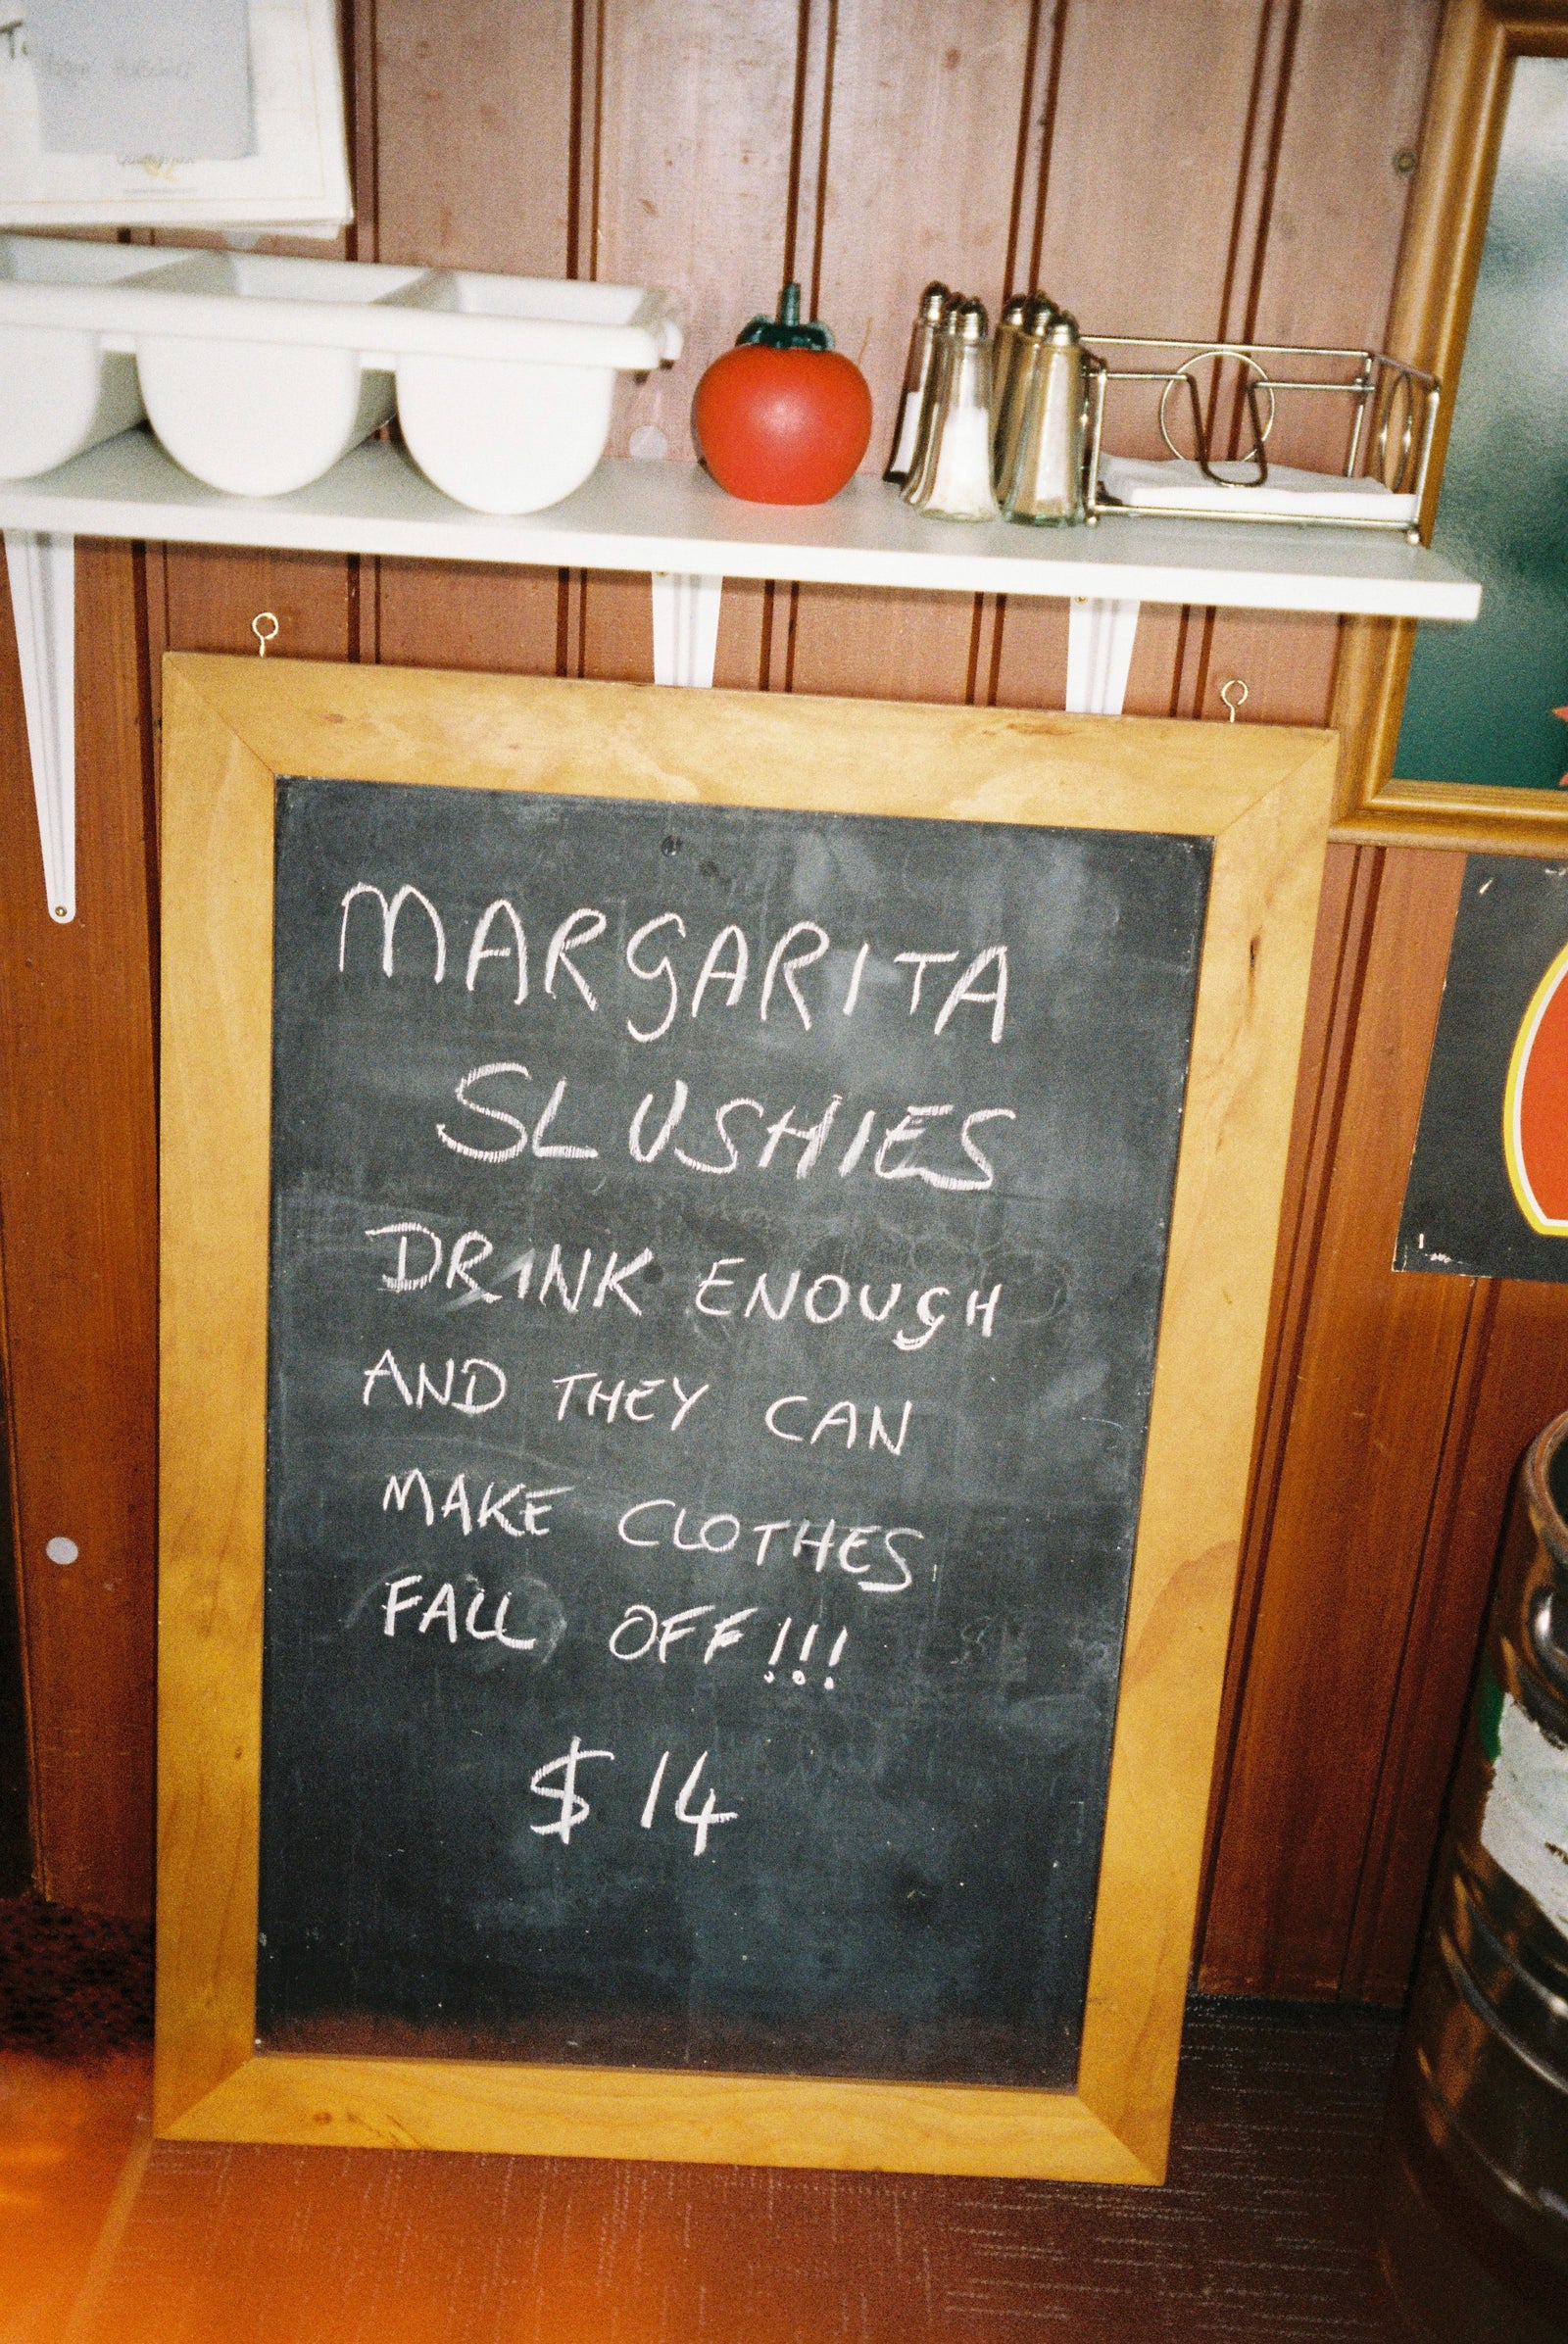 MARGARITA
SLUSHIES
DRINK ENOUGH
AND THEY CAN
MAKE CLOTHES
FALL OFF!!!
$14